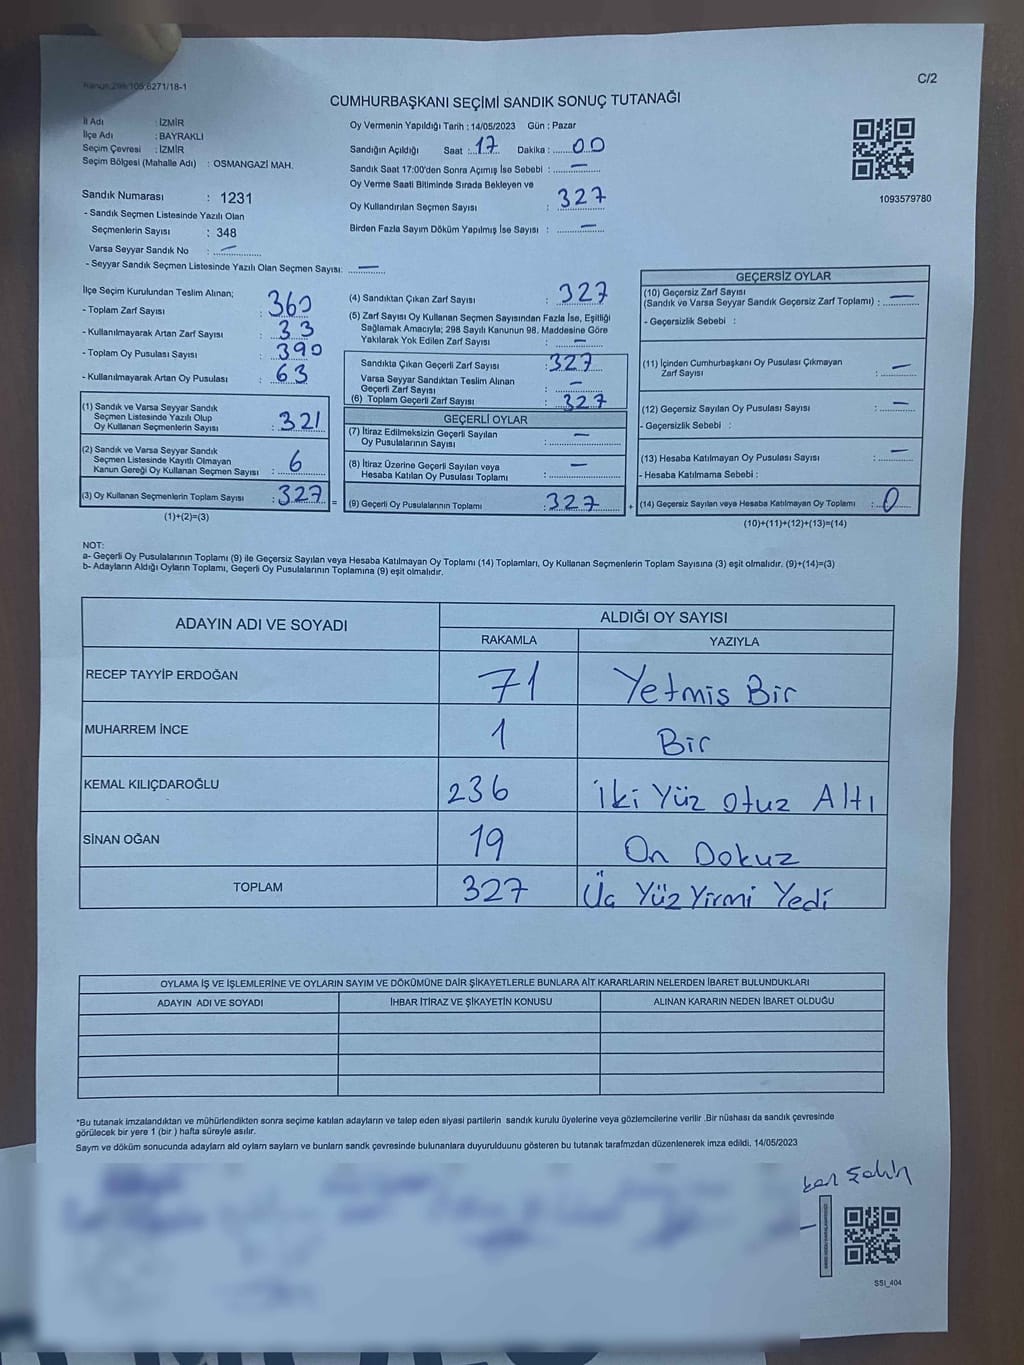 Kanun:298/105;6271/18-1
C/2
CUMHURBAŞKANI SEÇİMİ SANDIK SONUÇ TUTANAĞI
İl Adı : İZMİR
İlçe Adı : BAYRAKLI
Seçim Çevresi : İZMİR
Seçim Bölgesi (Mahalle Adı) : OSMANGAZİ MAH.
Oy Vermenin Yapıldığı Tarih : 14/05/2023 Gün : Pazar
Sandığın Açıldığı Saat : 17 Dakika : 00
Sandık Saat 17:00'den Sonra Açımış İse Sebebi : —
Oy Verme Saati Bitiminde Sırada Bekleyen ve
Oy Kullandırılan Seçmen Sayısı : 327
Birden Fazla Sayım Döküm Yapılmış İse Sayısı : —
1093579780
Sandık Numarası : 1231
- Sandık Seçmen Listesinde Yazılı Olan
Seçmenlerin Sayısı : 348
Varsa Seyyar Sandık No : —
- Seyyar Sandık Seçmen Listesinde Yazılı Olan Seçmen Sayısı: —
İlçe Seçim Kurulundan Teslim Alınan;
- Toplam Zarf Sayısı : 360
- Kullanılmayarak Artan Zarf Sayısı : 33
- Toplam Oy Pusulası Sayısı : 390
- Kullanılmayarak Artan Oy Pusulası : 63
(1) Sandık ve Varsa Seyyar Sandık
Seçmen Listesinde Yazılı Olup
Oy Kullanan Seçmenlerin Sayısı : 321
(2) Sandık ve Varsa Seyyar Sandık
Seçmen Listesinde Kayıtlı Olmayan
Kanun Gereği Oy Kullanan Seçmen Sayısı : 6
(3) Oy Kullanan Seçmenlerin Toplam Sayısı : 327 =
(1)+(2)=(3)
(4) Sandıktan Çıkan Zarf Sayısı : 327
(5) Zarf Sayısı Oy Kullanan Seçmen Sayısından Fazla İse, Eşitliği
Sağlamak Amacıyla; 298 Sayılı Kanunun 98. Maddesine Göre
Yakılarak Yok Edilen Zarf Sayısı : —
Sandıkta Çıkan Geçerli Zarf Sayısı : 327
Varsa Seyyar Sandıktan Teslim Alınan
Geçerli Zarf Sayısı : —
(6) Toplam Geçerli Zarf Sayısı : 327
GEÇERLİ OYLAR
(7) İtiraz Edilmeksizin Geçerli Sayılan
Oy Pusulalarının Sayısı : —
(8) İtiraz Üzerine Geçerli Sayılan veya
Hesaba Katılan Oy Pusulası Toplamı : —
(9) Geçerli Oy Pusulalarının Toplamı : 327 +
GEÇERSİZ OYLAR
(10) Geçersiz Zarf Sayısı
(Sandık ve Varsa Seyyar Sandık Geçersiz Zarf Toplamı) : —
- Geçersizlik Sebebi :
(11) İçinden Cumhurbaşkanı Oy Pusulası Çıkmayan
Zarf Sayısı : —
(12) Geçersiz Sayılan Oy Pusulası Sayısı : —
- Geçersizlik Sebebi :
(13) Hesaba Katılmayan Oy Pusulası Sayısı : —
- Hesaba Katılmama Sebebi :
(14) Geçersiz Sayılan veya Hesaba Katılmayan Oy Toplamı : 0
(10)+(11)+(12)+(13)=(14)
NOT:
a- Geçerli Oy Pusulalarının Toplamı (9) ile Geçersiz Sayılan veya Hesaba Katılmayan Oy Toplamı (14) Toplamları, Oy Kullanan Seçmenlerin Toplam Sayısına (3) eşit olmalıdır. (9)+(14)=(3)
b- Adayların Aldığı Oyların Toplamı, Geçerli Oy Pusulalarının Toplamına (9) eşit olmalıdır.
ADAYIN ADI VE SOYADI ALDIĞI OY SAYISI
RAKAMLA YAZIYLA
RECEP TAYYİP ERDOĞAN 71 Yetmiş Bir
MUHARREM İNCE 1 Bir
KEMAL KILIÇDAROĞLU 236 İki Yüz otuz Altı
SİNAN OĞAN 19 On Dokuz
TOPLAM 327 Üç Yüz Yirmi Yedi
OYLAMA İŞ VE İŞLEMLERİNE VE OYLARIN SAYIM VE DÖKÜMÜNE DAİR ŞİKAYETLERLE BUNLARA AİT KARARLARIN NELERDEN İBARET BULUNDUKLARI
ADAYIN ADI VE SOYADI İHBAR İTİRAZ VE ŞİKAYETİN KONUSU ALINAN KARARIN NEDEN İBARET OLDUĞU
*Bu tutanak imzalandıktan ve mühürlendikten sonra seçime katılan adayların ve talep eden siyasi partilerin sandık kurulu üyelerine veya gözlemcilerine verilir .Bir nüshası da sandık çevresinde
görülecek bir yere 1 (bir ) hafta süreyle asılır.
Saym ve döküm sonucunda adaylarn ald oylarn saylarn ve bunlarn sandk çevresinde bulunanlara duyurulduunu gösteren bu tutanak tarafmzdan düzenlenerek imza edildi. 14/05/2023
SSI_404